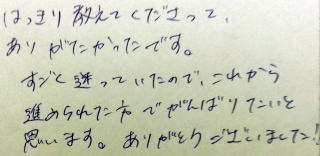 はっきり教えてくださって、
ありがたかったです。
すごく迷っていたので、これから
進められた方でがんばりたいと
思います。ありがとうございました!